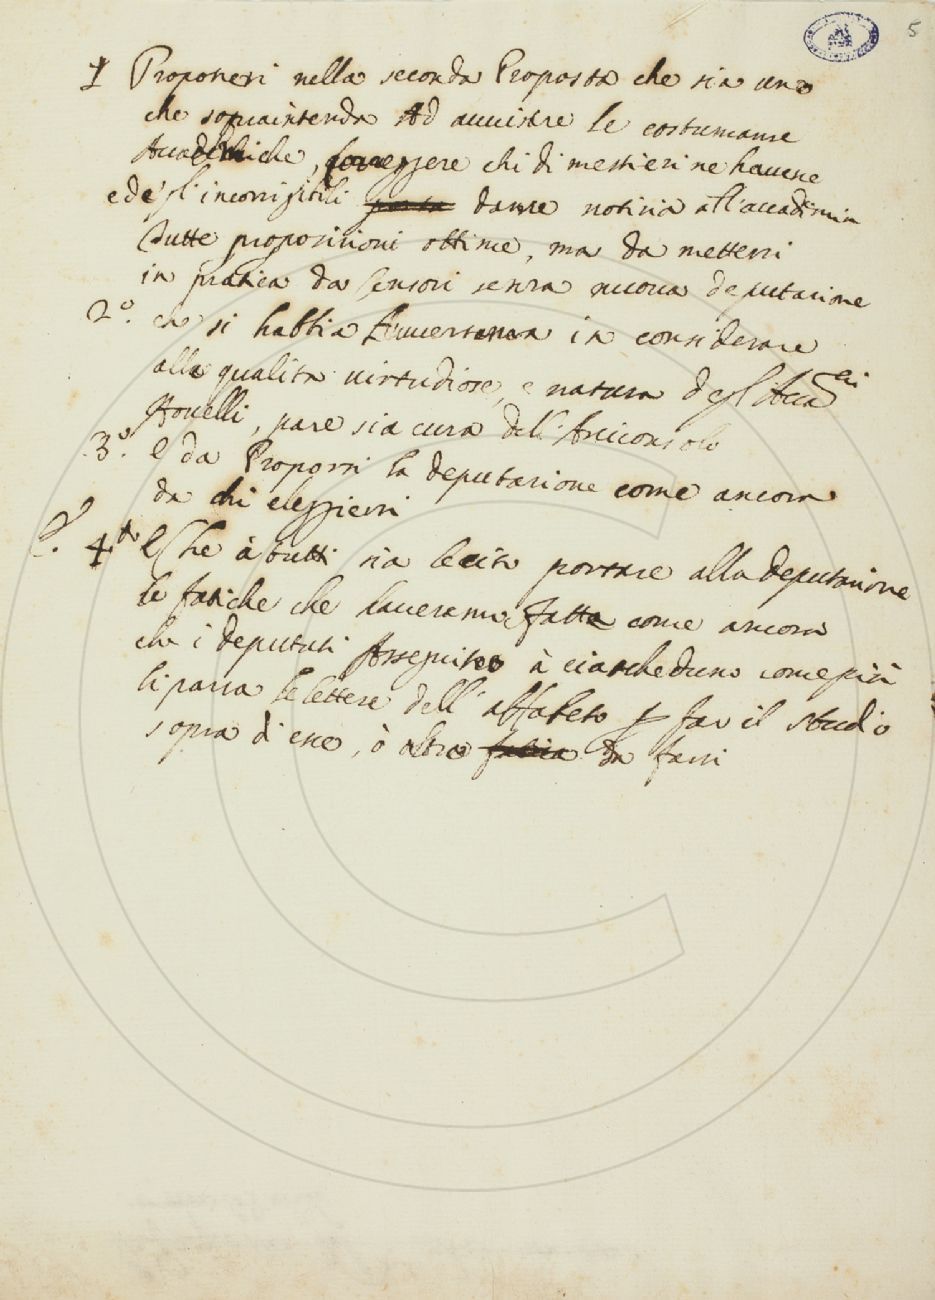 5
1 Proponesi nella seconda Proposta che sia uno
che sopraintenda Ad avvisare le costumanze
Accademiche, correggere chi di mestieri ne havene
e degl'incorrigibili darne notizia all'accademia
tutte proposizioni ottime, ma da mettersi
in pratica da Censori senza nuova deputazione
2.º che si habbia Avvertenza in considerare
alle qualità virtudiose, e natura degl'Acca.ci
Novelli, pare sia cura dell'Arciconsolo
3.º E da Proporsi la deputazione come ancora
da chi eleggiersi
4.to E Che à tutti sia lecito portare alla deputazione
le fatiche che haveranno fatte come ancora
che i deputati à ciascheduno come più
li parra le lettere dell'alfabeto p far il studio
sopra d'esse, ò altro da farsi